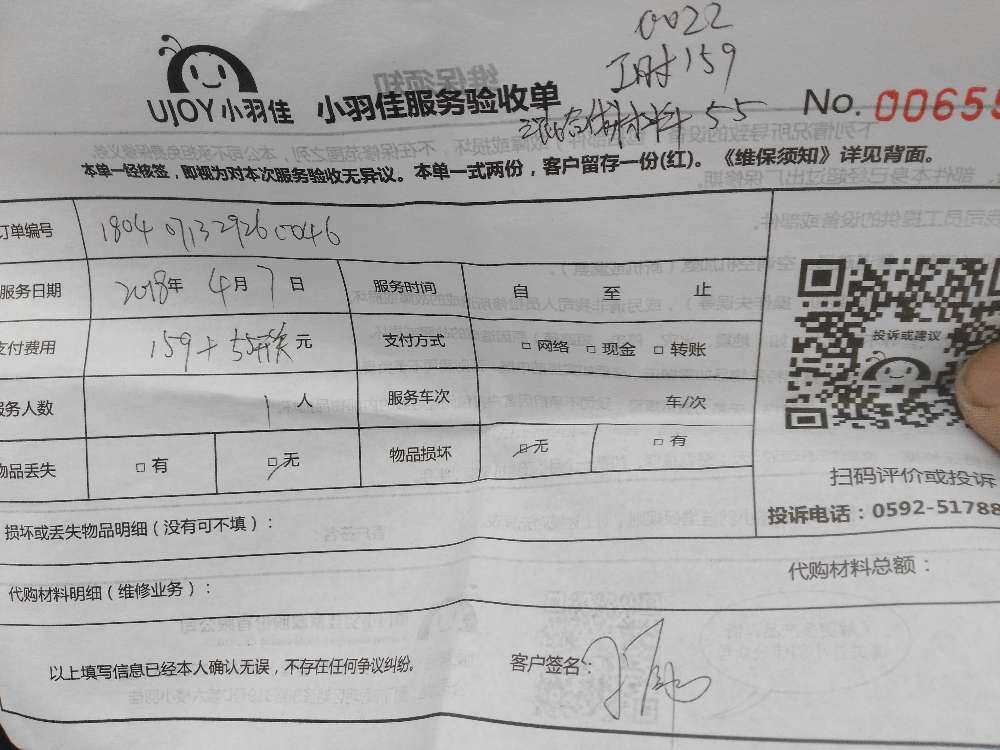 0022
工时159
55
UJOY小羽佳 小羽佳服务验收单 No. 00655
本单一经核签，即视为对本次服务验收无异议。本单一式两份，客户留存一份(红)。《维保须知》详见背面。
订单编号 1804071329260046
服务日期 2018年4月7日 服务时间 自 至 止
支付费用 159+55 元 支付方式 □网络 □现金 □转账
服务人数 1人 服务车次 车/次
物品丢失 □有 □无 物品损坏 □无 □有
投诉或建议
扫码评价或投诉
投诉电话：0592-51788
损坏或丢失物品明细（没有可不填）：
代购材料明细（维修业务）： 代购材料总额：
以上填写信息已经本人确认无误，不存在任何争议纠纷。 客户签名：